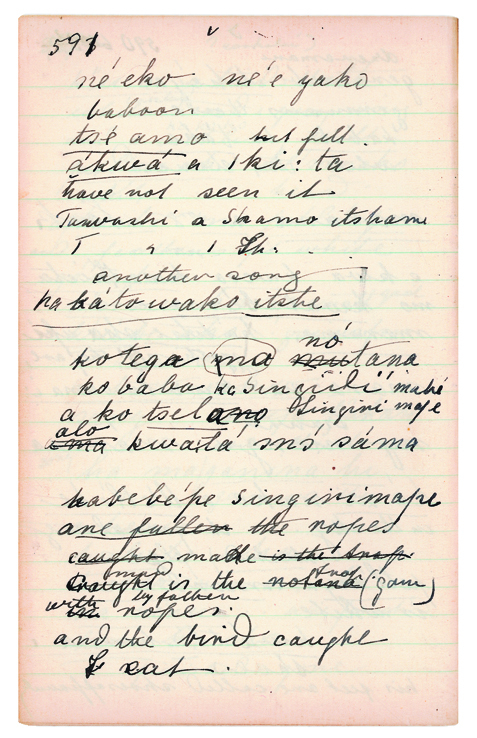 591
né'eko né'e yako
baboon
tsé amo but fell.
ákwá a Iki: ta
have not seen it
Tanwashi a Skamo itsham
T " I Sh:
another song
ha báto wako itshe
nó
kotega ma mutana
ko baba ka Singiidi mahé
a ko tselano Singiri mape
alo
ama kwaitá sns sáma
habebépe singirimape
are fallen the ropes
caught made is the trap
made not
Caught is the notana (gom)
with by father
ropes.
and the bird caught
I eat.